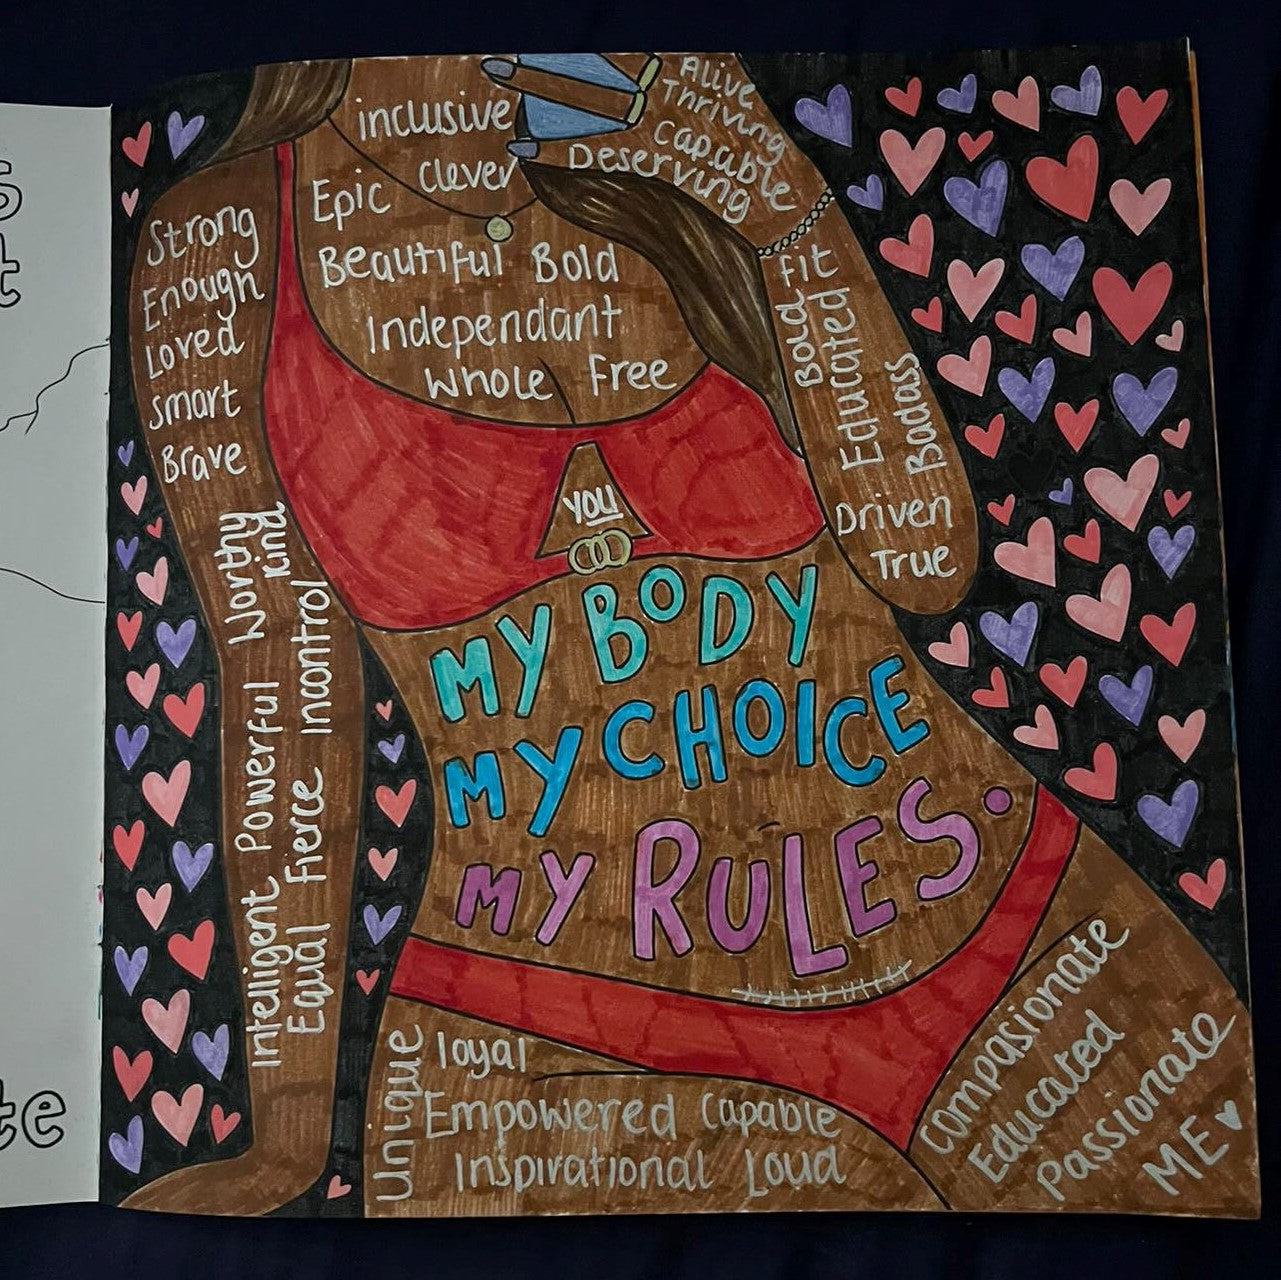 inclusive
Clever
Epic
Beautiful Bold
Independant
Whole Free
Alive
Thriving
Capable
Deserving
Strong
Enough
Loved
Smart
Brave
Worthy
Kind
Intelligent Powerful
Equal Fierce Incontrol
Fit
Bold
Educated
Badass
Driven
True
YOU
MY BODY
MY CHOICE
MY RULES.
Unique
loyal
Empowered Capable
Inspirational Loud
Compasionate
Educated
Passionate
ME
te